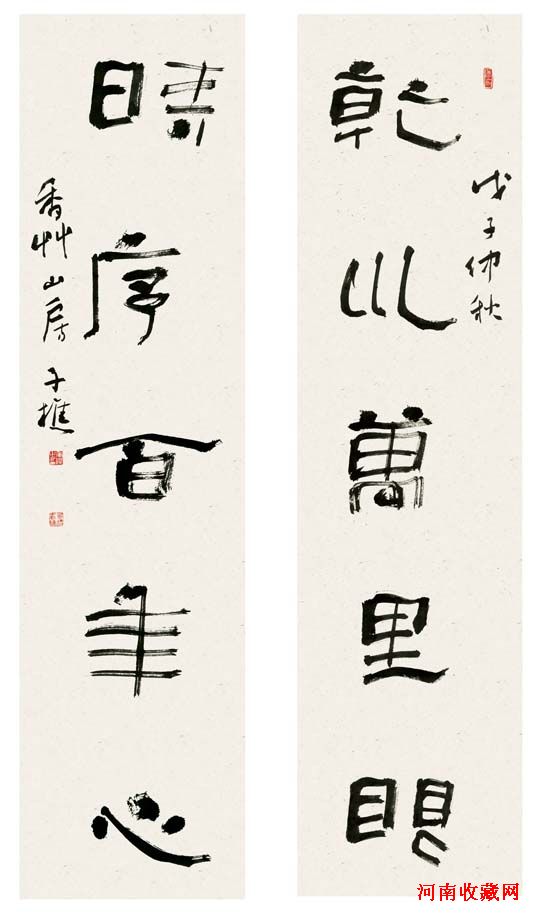 戊子仲秋
乾坤萬里眼
時序百年心
香艸山房 子樵
河南收藏网